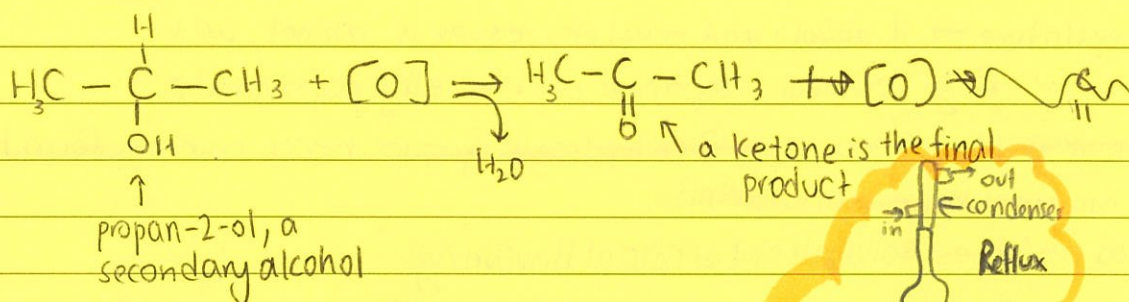 H
H₃C — C — CH₃ + [O] → H₃C — C — CH₃ + → [O] →
OH
O
H₂O
a ketone is the final
product
propan-2-ol, a
secondary alcohol
out
condenser
in
Reflux